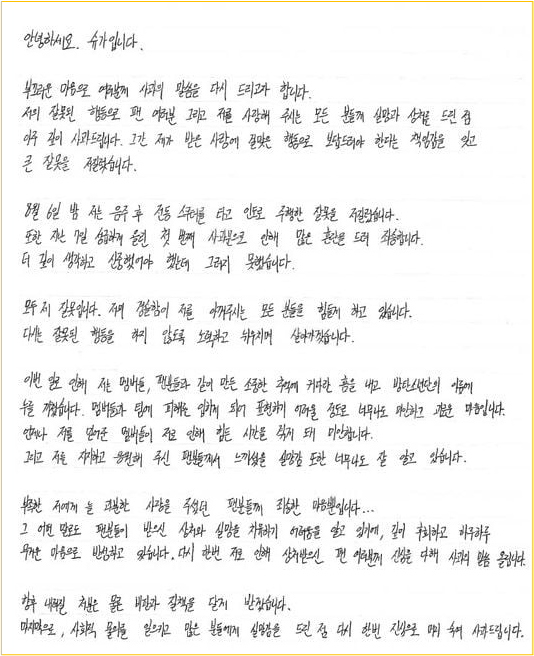 안녕하세요. 슈가입니다.
부끄러운 마음으로 여러분께 사과의 말씀을 다시 드리고자 합니다.
저의 잘못된 행동으로 팬 여러분 그리고 저를 사랑해 주시는 모든 분들께 실망과 상처를 드린 점
아주 깊이 사과드립니다. 그간 제가 받은 사랑에 걸맞은 행동으로 보답드려야 한다는 책임감을 잊고
큰 잘못을 저질렀습니다.
8월 6일 밤 저는 음주 후 전동 스쿠터를 타고 인도로 주행한 잘못을 저질렀습니다.
또한 지난 7일 성급하게 올렸던 첫 번째 사과문으로 인해 많은 혼란을 드려 죄송합니다.
더 깊이 생각하고 신중했어야 했는데 그러지 못했습니다.
모두 제 잘못입니다. 저의 경솔함이 저를 아껴주시는 모든 분들을 힘들게 하고 있습니다.
다시는 잘못된 행동을 하지 않도록 노력하고 뉘우치며 살아가겠습니다.
이번 일로 인해 저는 멤버들, 팬분들과 같이 만든 소중한 추억에 커다란 흠을 내고 방탄소년단의 이름에
누를 끼쳤습니다. 멤버들과 팀에 피해를 입히게 되어 표현하기 어려울 정도로 너무나도 미안하고 괴로운 마음입니다.
언제나 저를 믿어준 멤버들이 저로 인해 힘든 시간을 겪게 돼 미안합니다.
그리고 저를 지지하고 응원해 주신 팬분들께서 느끼셨을 실망감 또한 너무나도 잘 알고 있습니다.
부족한 저에게 늘 과분한 사랑을 주셨던 팬분들께 죄송한 마음뿐입니다...
그 어떤 말로도 팬분들이 받으신 상처와 실망을 치유하기 어려움을 알고 있기에, 깊이 후회하고 하루하루
무거운 마음으로 반성하고 있습니다. 다시 한번 저로 인해 상처받으신 팬 여러분께 진심을 다해 사과의 말씀 올립니다.
향후 내려질 처분은 물론 비판과 질책을 달게 받겠습니다.
마지막으로, 사회적 물의를 일으키고 많은 분들에게 실망감을 드린 점 다시 한번 진심으로 머리 숙여 사과드립니다.